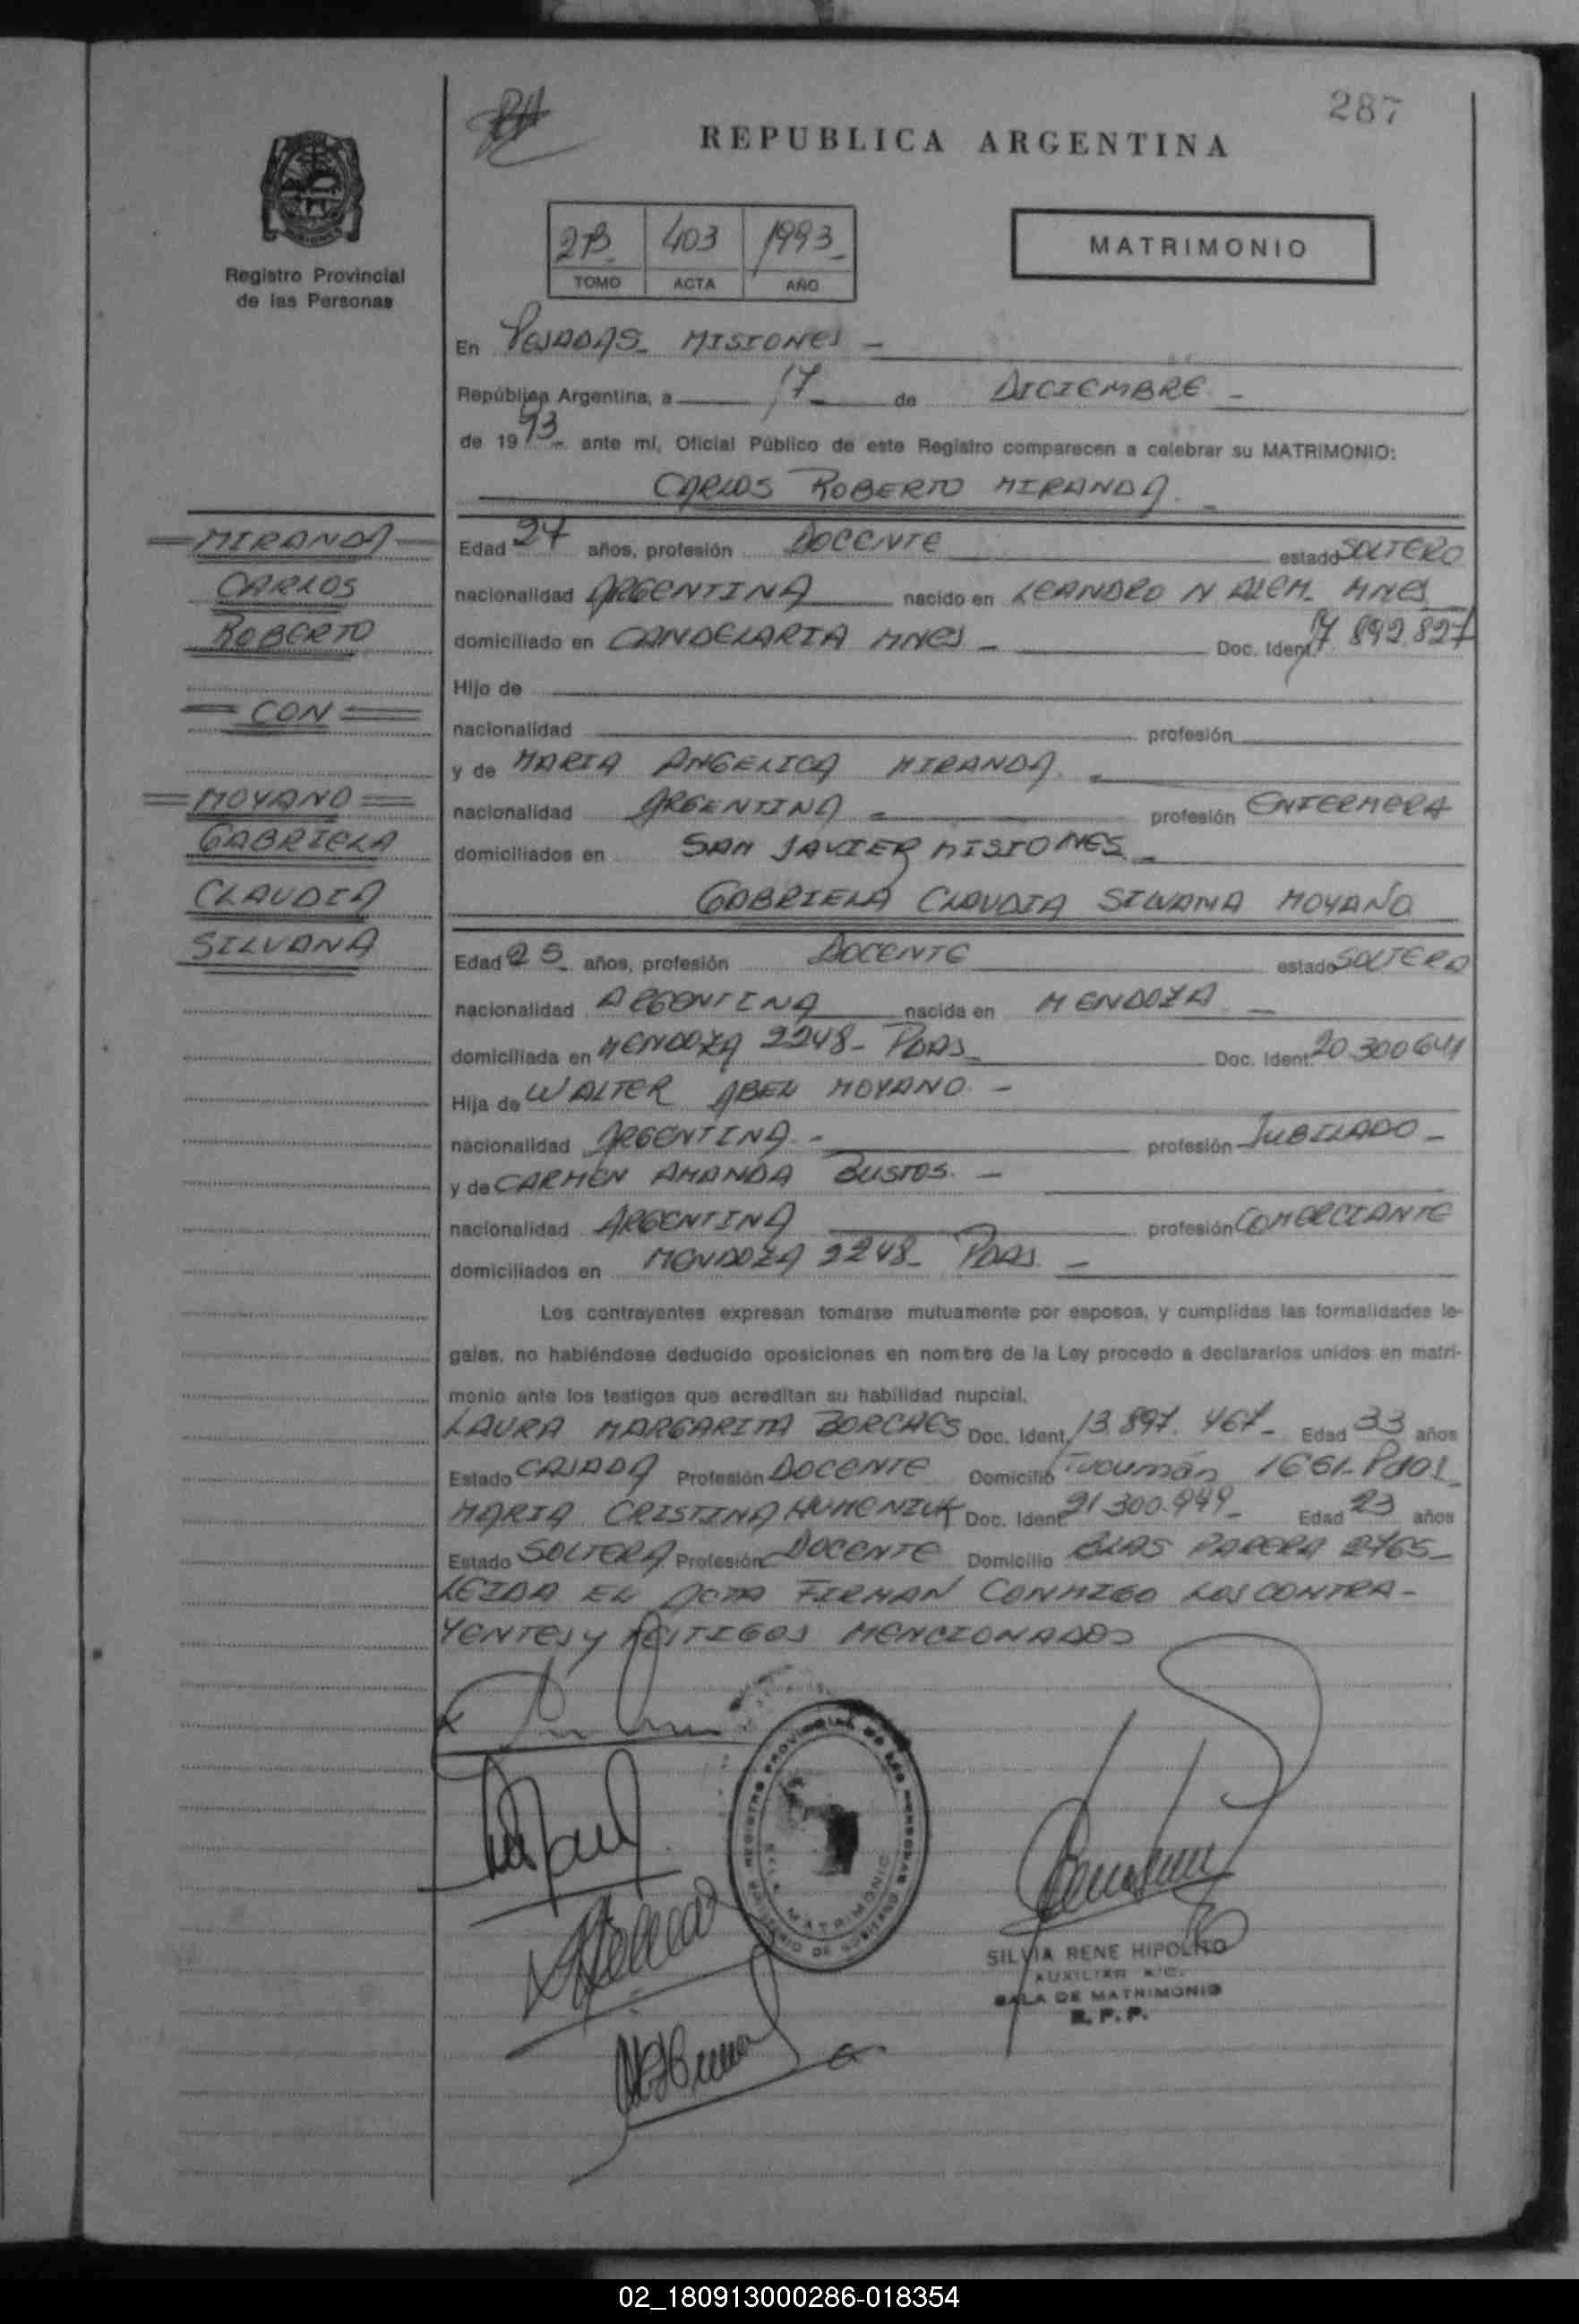 287
REPUBLICA ARGENTINA
Registro Provincial
de las Personas
2B 403 1993
TOMO ACTA AÑO
MATRIMONIO
En POSADAS - MISIONES -
República Argentina, a 17 de DICIEMBRE -
de 1993 - ante mí, Oficial Público de este Registro comparecen a celebrar su MATRIMONIO:
CARLOS ROBERTO MIRANDA. -
= MIRANDA =
CARLOS
ROBERTO
= CON =
= MOYANO =
GABRIELA
CLAUDIA
SILVANA
Edad 27 años, profesión DOCENTE estado SOLTERO
nacionalidad ARGENTINA nacido en LEANDRO N ALEM - MNES
domiciliado en CANDELARIA MNES - Doc. Ident. 17.892.827
Hijo de
nacionalidad profesión
y de MARIA ANGELICA MIRANDA. -
nacionalidad ARGENTINA - profesión ENFERMERA
domiciliados en SAN JAVIER MISIONES -
GABRIELA CLAUDIA SILVANA MOYANO
Edad 25 años, profesión DOCENTE estado SOLTERA
nacionalidad ARGENTINA nacida en MENDOZA -
domiciliada en MENDOZA 2248 - PDAS Doc. Ident. 20.300641
Hija de WALTER ABEL MOYANO -
nacionalidad ARGENTINA - profesión JUBILADO -
y de CARMEN AMANDA BUSTOS. -
nacionalidad ARGENTINA profesión COMERCIANTE
domiciliados en MENDOZA 2248 - PDAS. -
Los contrayentes expresan tomarse mutuamente por esposos, y cumplidas las formalidades le-
gales, no habiéndose deducido oposiciones en nombre de la Ley procedo a declararlos unidos en matri-
monio ante los testigos que acreditan su habilidad nupcial.
LAURA MARGARITA BORCHES Doc. Ident. 13.897.467 - Edad 33 años
Estado CASADA Profesión DOCENTE Domicilio Tucumán 1661 - Pdas
MARIA CRISTINA HUMENIUK Doc. Ident. 21.300.999 - Edad 23 años
Estado SOLTERA Profesión DOCENTE Domicilio BLAS PARERA 2765 -
LEIDA EL ACTA FIRMAN CONMIGO LOS CONTRA-
YENTES Y TESTIGOS MENCIONADOS
REGISTRO PROVINCIAL DE LAS PERSONAS
MATRIMONIO
SILVIA RENE HIPOLITO
AUXILIAR A/C.
SALA DE MATRIMONIO
R. P. P.
02_180913000286-018354